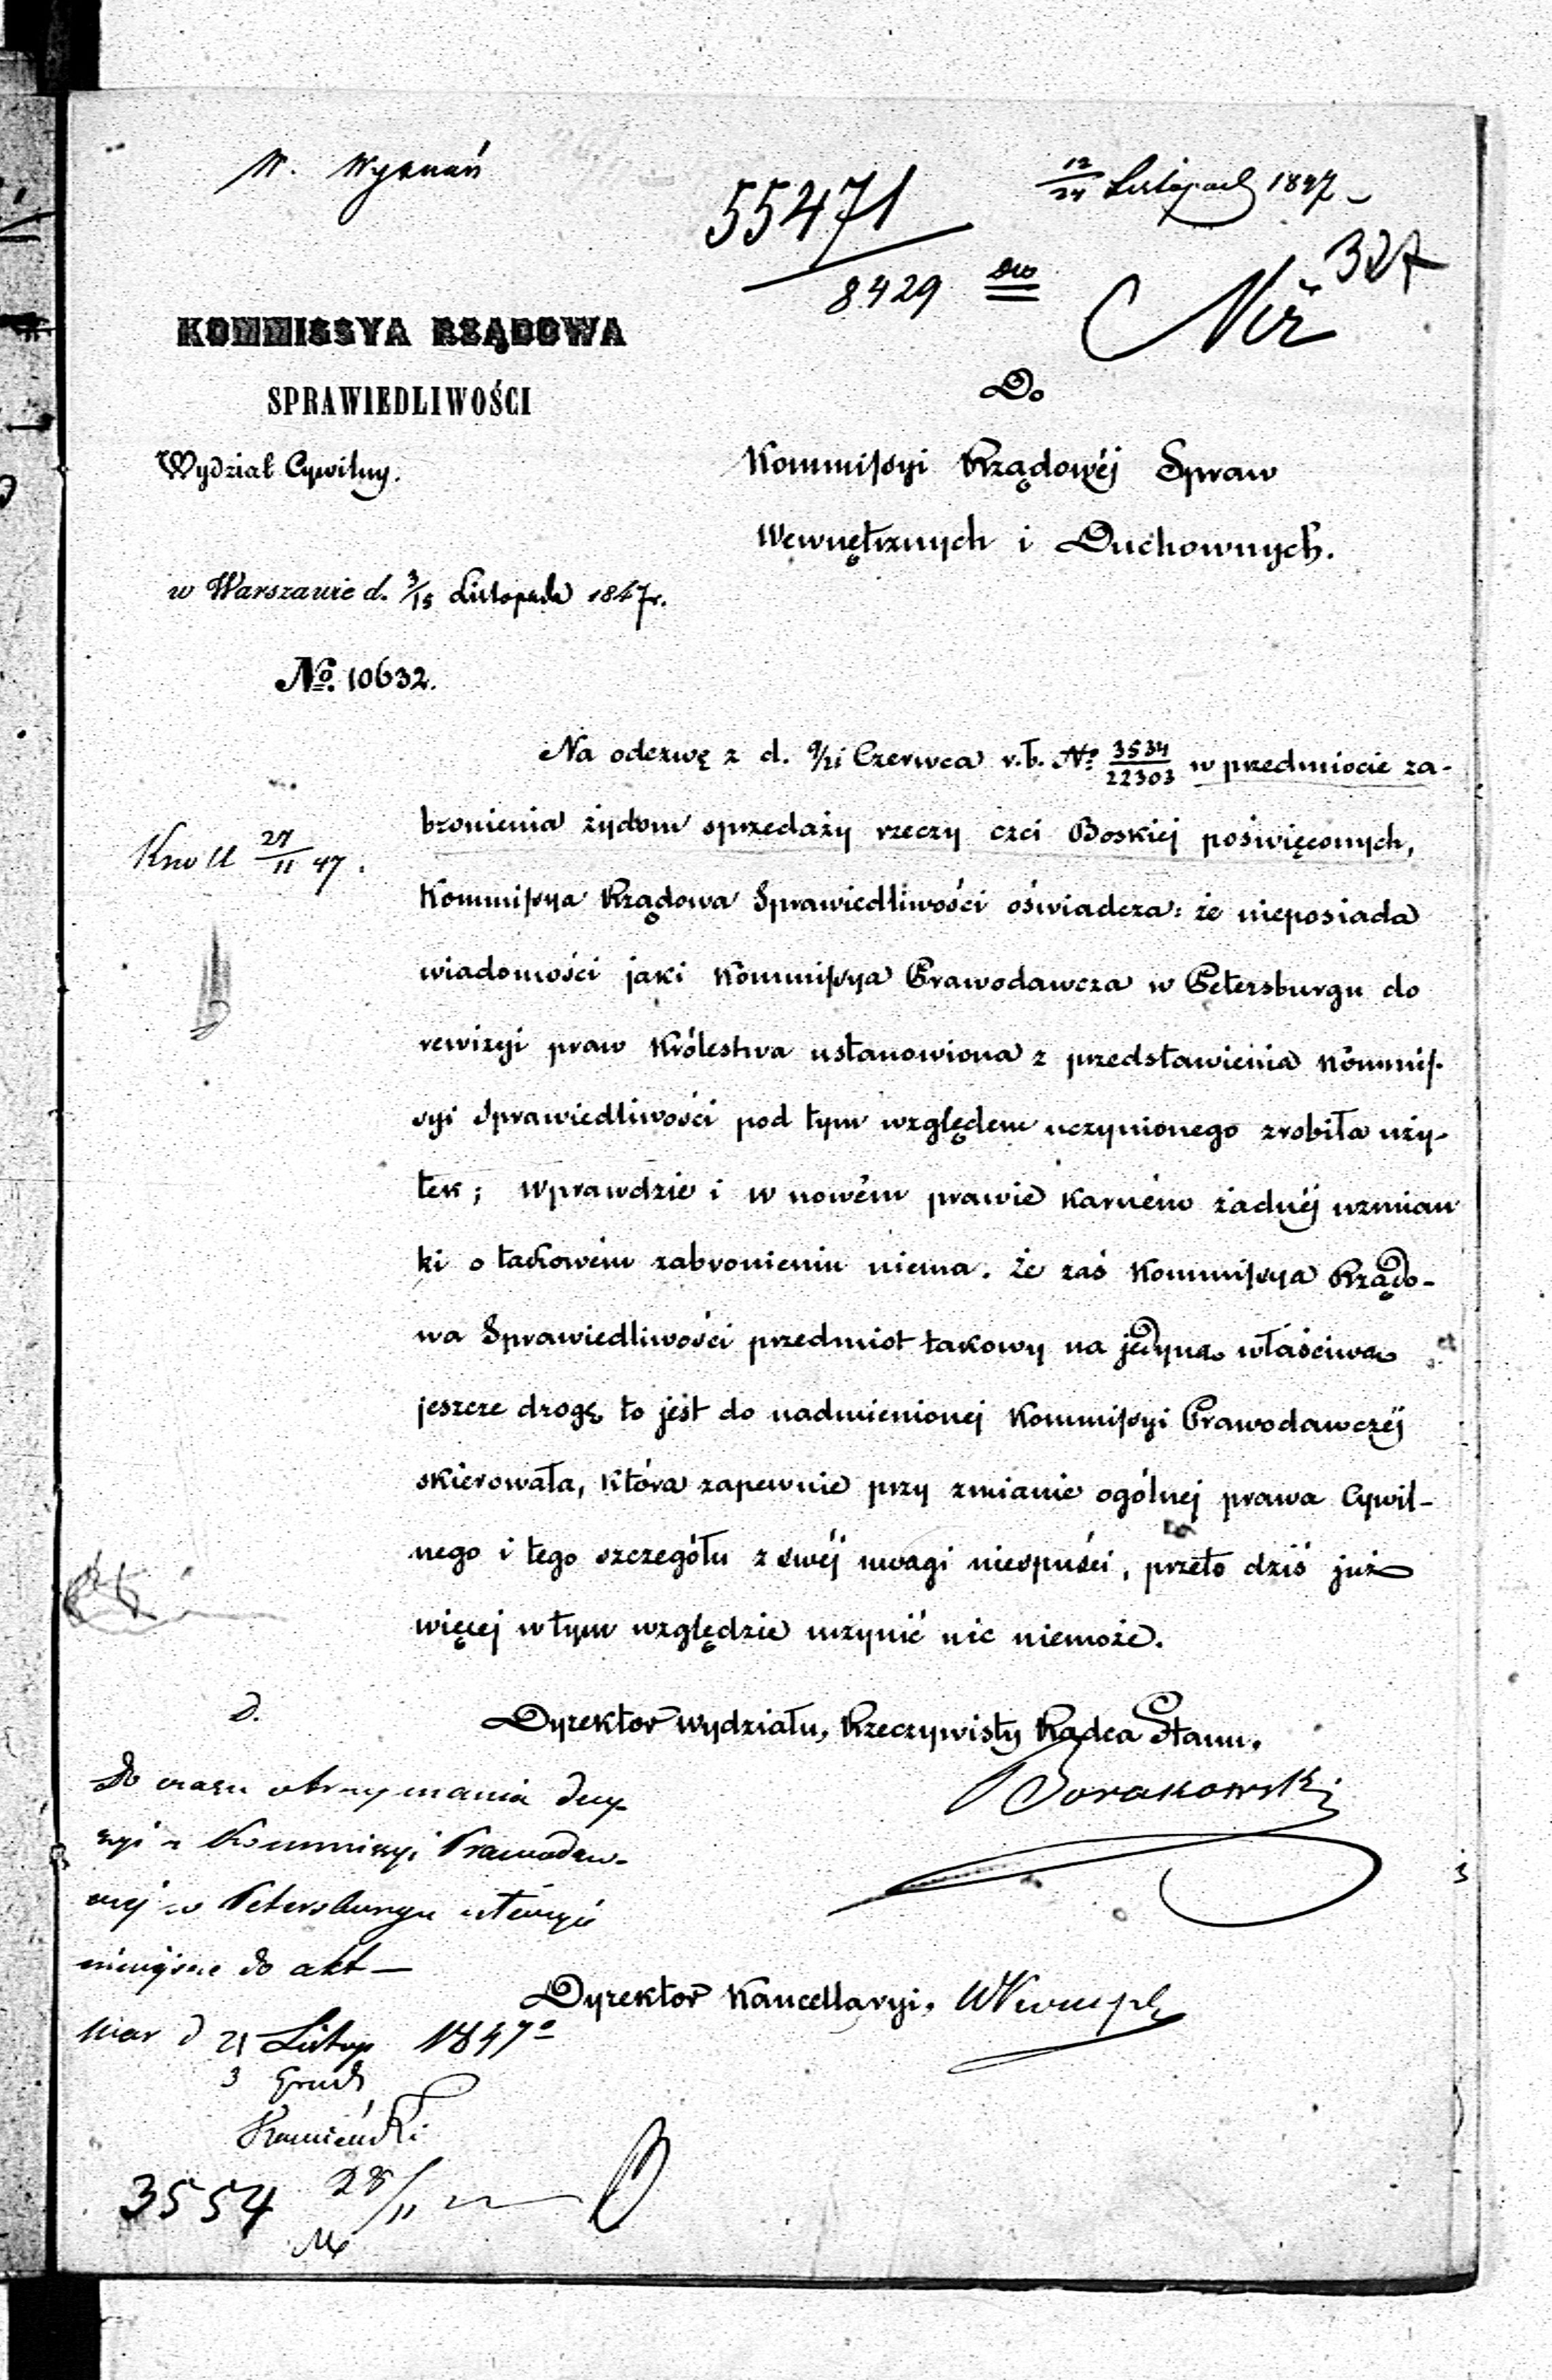 W. Wyznań
55471
8429
12/24 Listopad 1847
327
KOMMISSYA RZĄDOWA
SPRAWIEDLIWOŚCI
Wydział Cywilny.
w Warszawie d. 3/15 Listopada 1847r.
No. 10632.
Do
Kommissyi Rządowéj Spraw
Wewnętrznych i Duchownych.
Na odezwę z d. 9/21 Czerwca r.b. No 3534/22303 w przedmiocie za-
bronienia żydom sprzedaży rzeczy czci Boskiej poświęconych,
Kommissya Rządowa Sprawiedliwości oświadcza: że nieposiada
wiadomości jaki Kommissya Prawodawcza w Petersburgu do
rewizyi praw Królestwa ustanowiona z przedstawienia Kommis-
syi Sprawiedliwości pod tym względem uczynionego zrobiła uży-
tek; Wprawdzie i w nowém prawie Karném żadnéj wzmian
ki o takowém zabronieniu niema. Że zaś Kommissya Rządo-
wa Sprawiedliwości przedmiot takowy na jedyną właściwą
jeszcze drogę to jest do nadmienionej Kommissyi Prawodawczéj
skierowała, która zapewnie przy zmianie ogólnej prawa Cywil-
nego i tego szczegółu z swéj uwagi niespuści, przeto dziś już
więcej w tym względzie uczynić nic niemoże.
Dyrektor Wydziału, Rzeczywisty Radca Stanu.
Dyrektor Kancellaryi,
27/11 47.
D.
Do czasu otrzymania decy-
zyi z Kommissyi Prawodaw-
czej w Petersburgu złożyć
niniejsze do akt —
War d 21 Listop 1847
3 Grud
Kamieński
3554
28/11